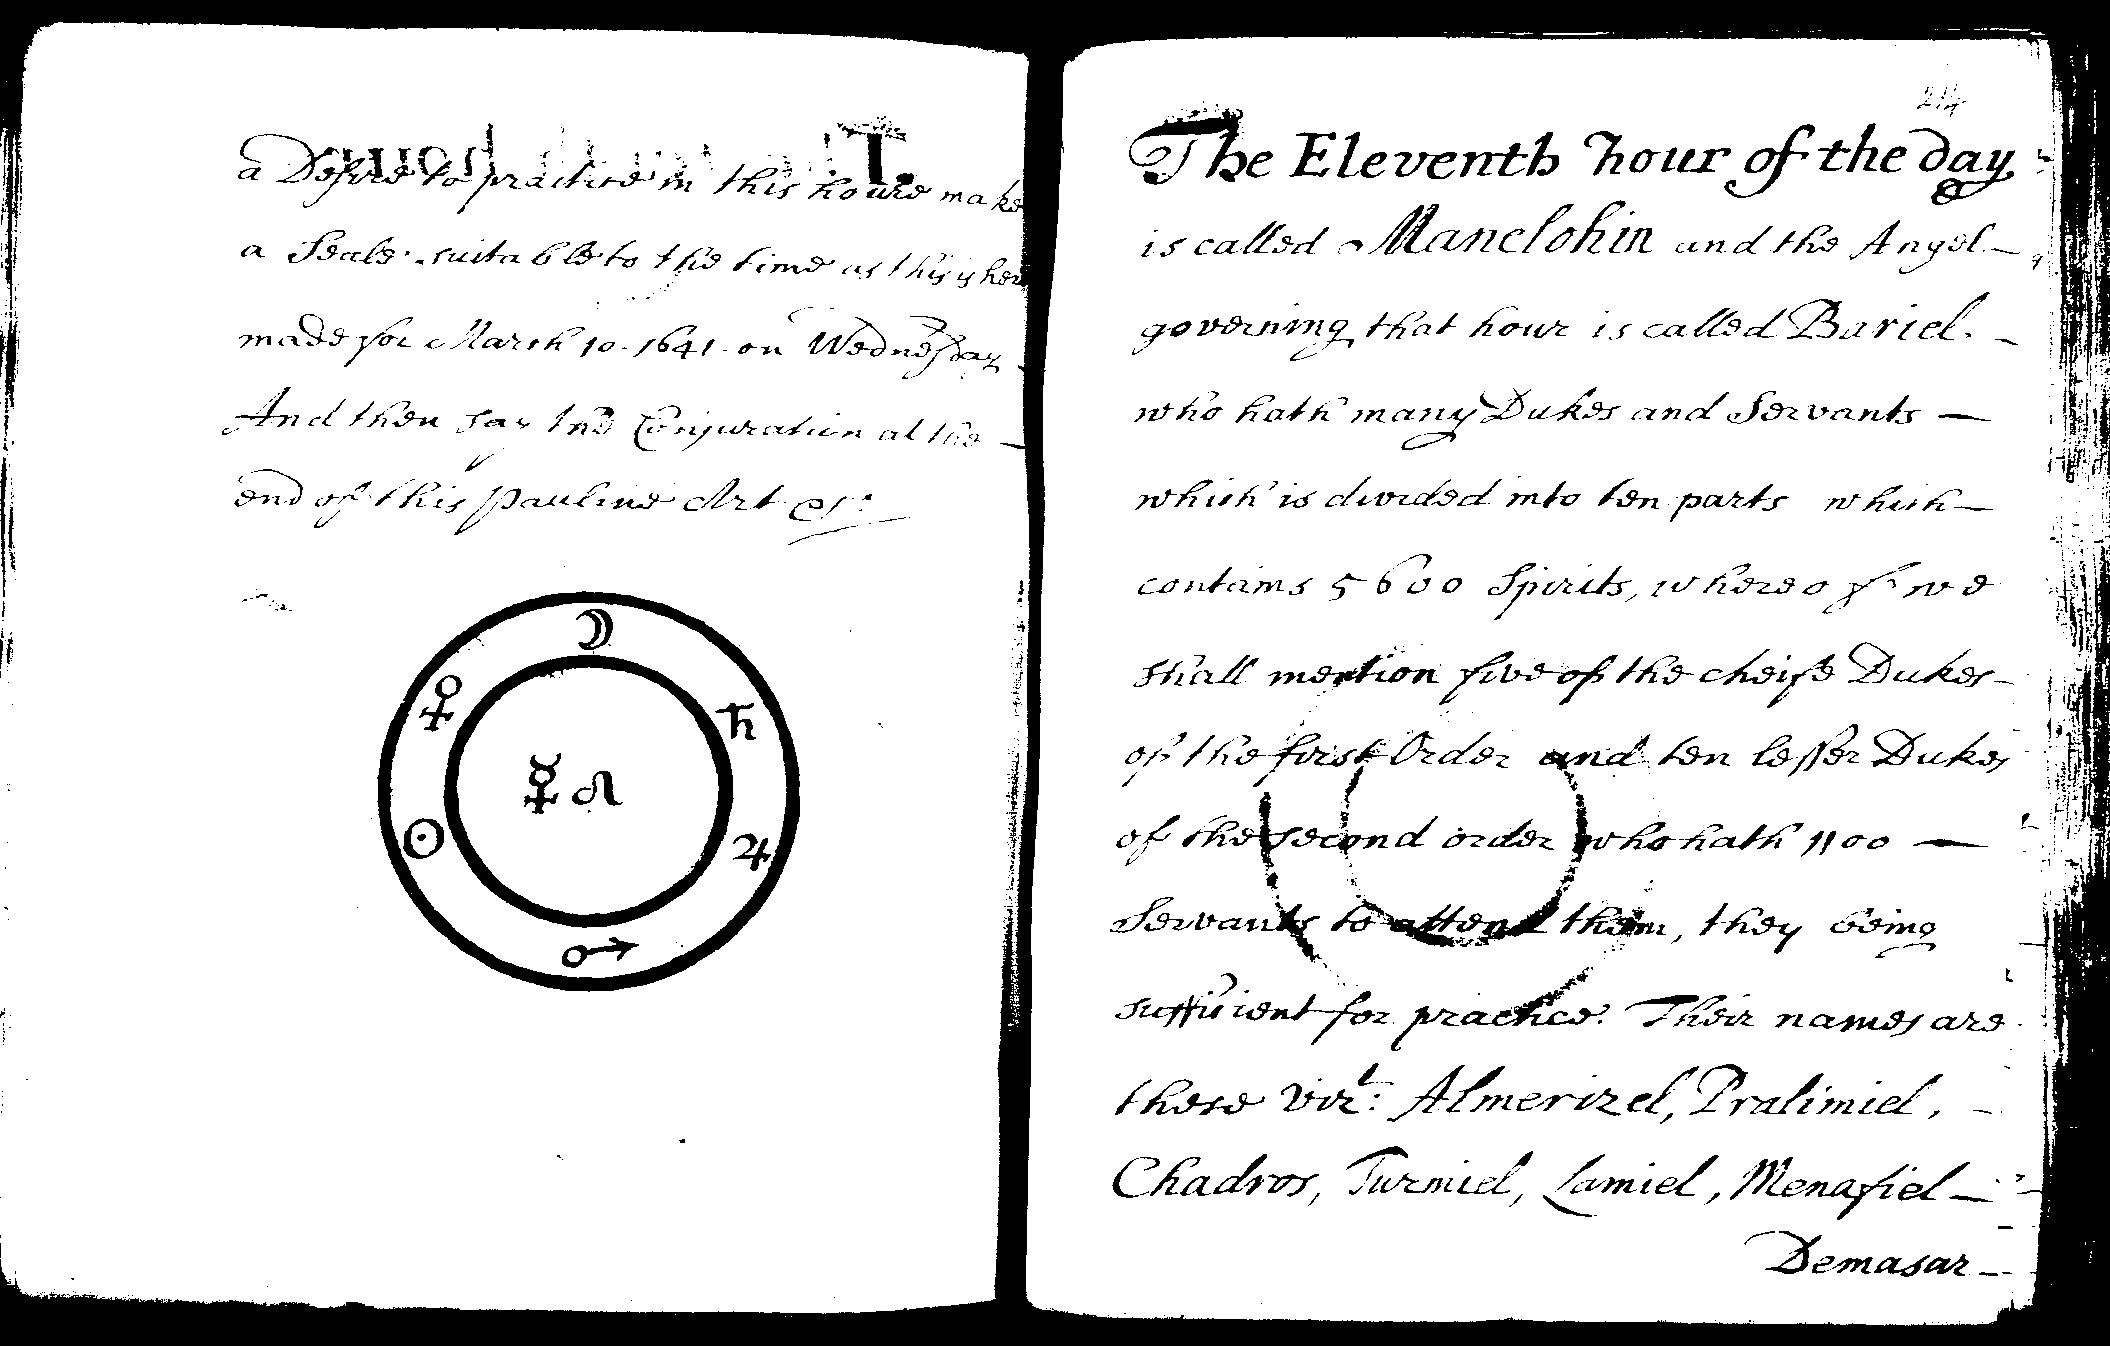 a Desire to practice in this houre make
a Seale suitable to the time as this is here
made for March 10. 1641. on Wednesday
And then say the Conjuration at the
end of this Pauline Art &c:
☽
♀ ♄
☿ ♌
☉ ♃
♂
214
The Eleventh hour of the day
is called Manelohin and the Angel
governing that hour is called Bariel.
who hath many Dukes and Servants
which is divided into ten parts which
contains 5600 Spirits, whereof we
shall mention five of the cheife Dukes
of the first Order and ten lesser Dukes
of the second order who hath 1100
Servants to attend them, they being
sufficient for practice. Their names are
these viz: Almerizel, Pralimiel,
Chadros, Turmiel, Lamiel, Menafiel
Demasar